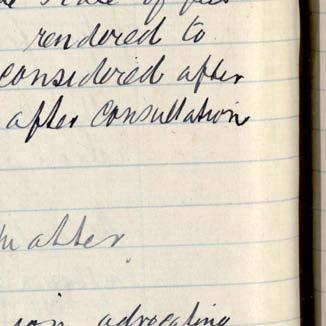 scale of fees
rendered to
considered after
after consultation
matter.
advocating